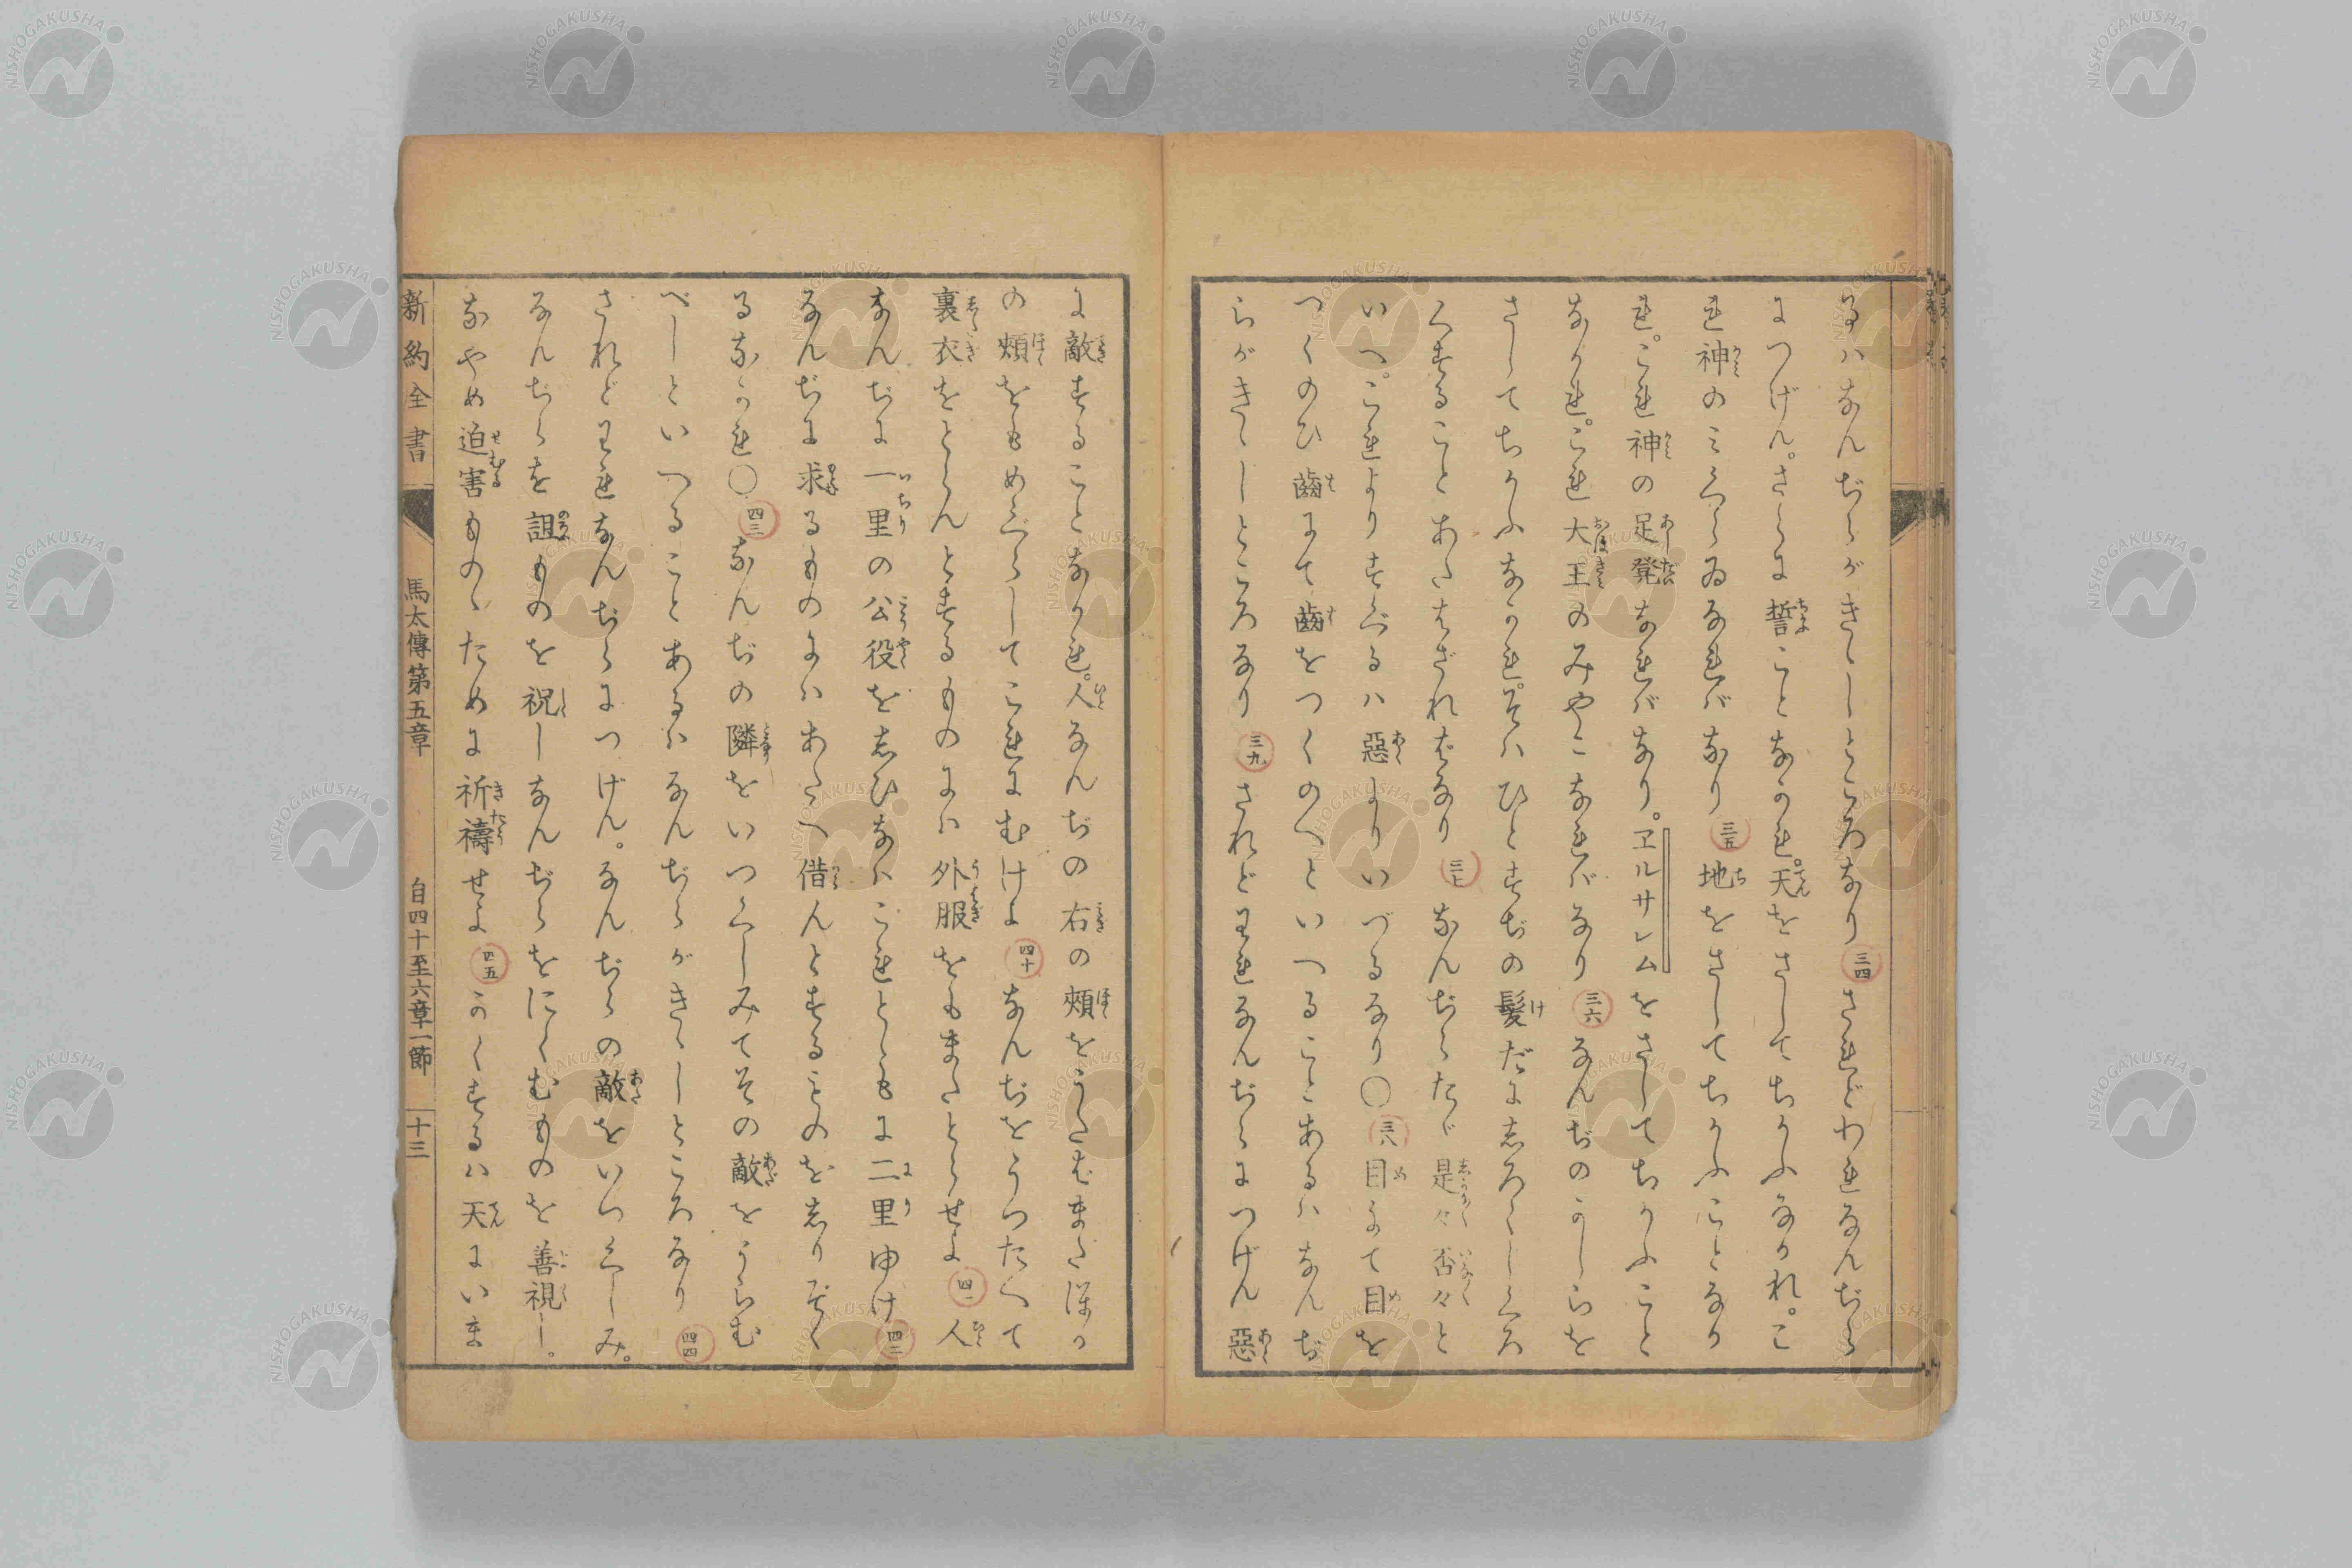 るハなんぢらがきゝしところなり三四されどわれなんぢら
につげん。さらに誓ことなかれ。天をさしてちかふなかれ。こ
れ神のみくらゐなれバなり三五地をさしてちかふことなか
れ。これ神の足凳なれバなり。ヱルサレムをさしてちかふこと
なかれ。これ大王のみやこなれバなり三六なんぢのかしらを
さしてちかふなかれ。そハひとすぢの髪だにしろくしくろ
くすることあたはざればなり三七なんぢらたゞ是々否々と
いへ。これよりすぐるハ惡よりいづるなり〇三八目にて目を
つくのひ齒にて齒をつくのへといへることあるハなんぢ
らがきゝしところなり三九されどわれなんぢらにつげん惡
に敵することなかれ。人なんぢの右の頰をうたばまたほか
の頰をもめぐらしてこれにむけよ四十なんぢをうつたへて
裏衣をとらんとするものにハ外服をもまたとらせよ四一人
なんぢに一里の公役をしひなハこれとともに二里ゆけ四二
なんぢに求るものにハあたへ借んとするものをしりぞく
るなかれ〇四三なんぢの隣をいつくしみてその敵をうらむ
べしといへることあるハなんぢらがきゝしところなり四四
されどわれなんぢらにつげん。なんぢらの敵をいつくしみ。
なんぢらを詛ものを祝しなんぢらをにくむものを善視し。
なやめ迫害ものゝために祈禱せよ四五かくするハ天にいま
新約全書 馬太傳第五章 自四十至六章一節 十三
NISHOGAKUSHA